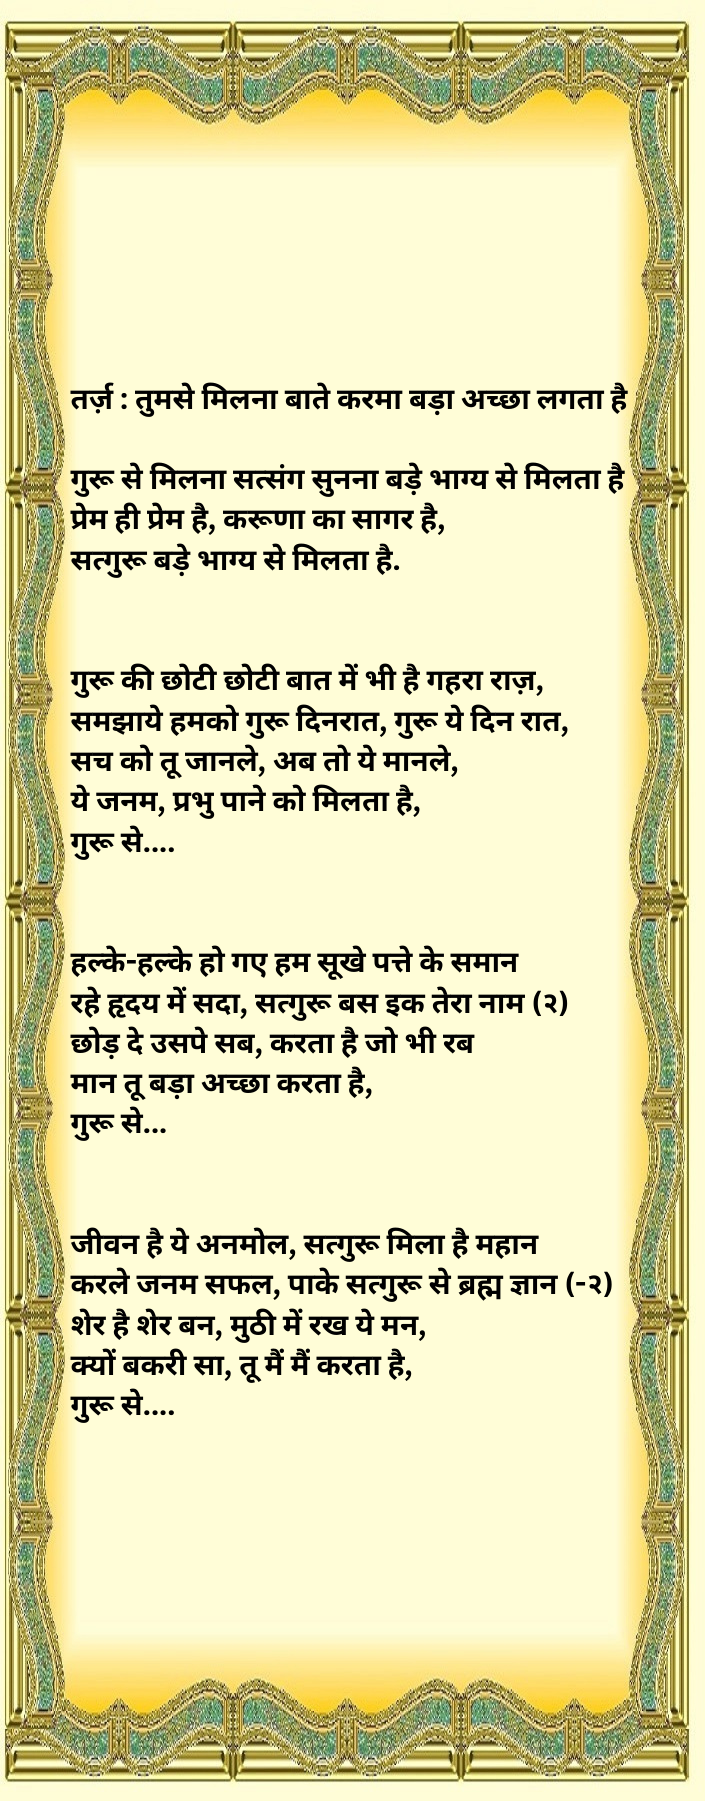 तर्ज़ : तुमसे मिलना बाते करमा बड़ा अच्छा लगता है
गुरू से मिलना सत्संग सुनना बड़े भाग्य से मिलता है
प्रेम ही प्रेम है, करूणा का सागर है,
सत्गुरू बड़े भाग्य से मिलता है.
गुरू की छोटी छोटी बात में भी है गहरा राज़,
समझाये हमको गुरू दिनरात, गुरू ये दिन रात,
सच को तू जानले, अब तो ये मानले,
ये जनम, प्रभु पाने को मिलता है,
गुरू से....
हल्के-हल्के हो गए हम सूखे पत्ते के समान
रहे हृदय में सदा, सत्गुरू बस इक तेरा नाम (२)
छोड़ दे उसपे सब, करता है जो भी रब
मान तू बड़ा अच्छा करता है,
गुरू से...
जीवन है ये अनमोल, सत्गुरू मिला है महान
करले जनम सफल, पाके सत्गुरू से ब्रह्म ज्ञान (-२)
शेर है शेर बन, मुठी में रख ये मन,
क्यों बकरी सा, तू मैं मैं करता है,
गुरू से....